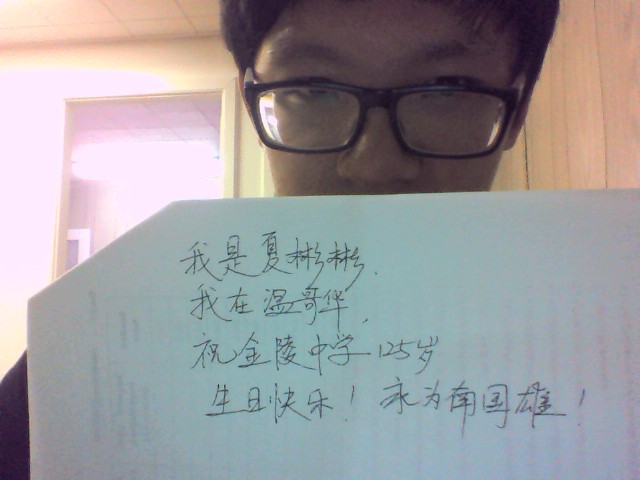 我是夏彬彬.
我在温哥华,
祝金陵中学125岁
生日快乐！永为南国雄！